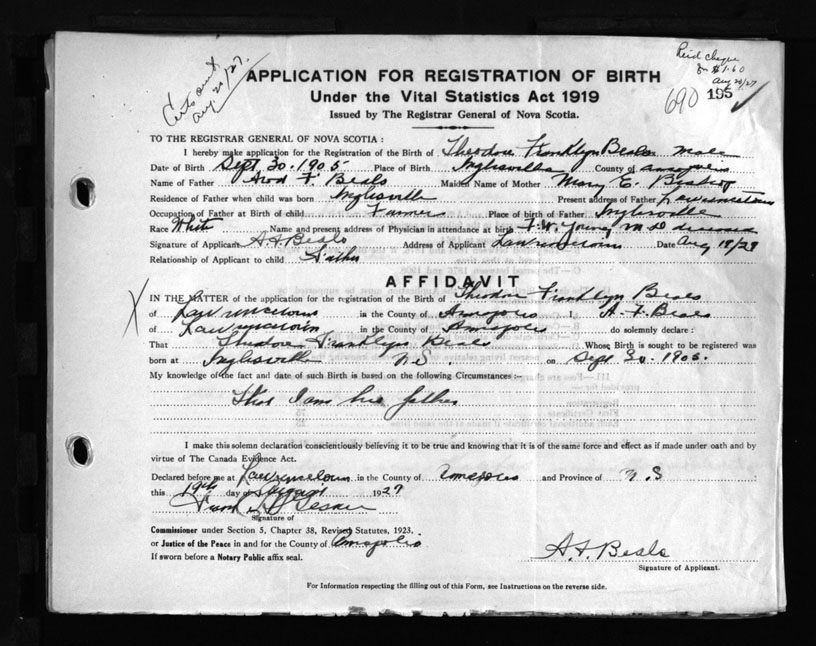 Certs out
Aug 20/27.
Reid cheque
for $1.60
Aug 20/27
690 195 ✓
APPLICATION FOR REGISTRATION OF BIRTH
Under the Vital Statistics Act 1919
Issued by The Registrar General of Nova Scotia.
TO THE REGISTRAR GENERAL OF NOVA SCOTIA :
I hereby make application for the Registration of the Birth of Theodore Franklyn Beals male
Date of Birth Sept 30. 1905 Place of Birth Inglisville County of Annapolis
Name of Father F. Beals Maiden Name of Mother Mary E.
Residence of Father when child was born Inglisville Present address of Father Lawrencetown
Occupation of Father at Birth of child Farmer Place of birth of Father Inglisville
Race White Name and present address of Physician in attendance at birth F. W. Young M D deceased
Signature of Applicant A F Beals Address of Applicant Lawrencetown Date Aug 18/27
Relationship of Applicant to child Father
AFFIDAVIT
IN THE MATTER of the application for the registration of the Birth of Theodore Franklyn Beals
of Lawrencetown in the County of Annapolis I, A. F. Beals
of Lawrencetown in the County of Annapolis do solemnly declare :
That Theodore Franklyn Beals Whose Birth is sought to be registered was
born at Inglisville N. S. on Sept 30. 1905.
My knowledge of the fact and date of such Birth is based on the following Circumstances :-
That I am his father
I make this solemn declaration conscientiously believing it to be true and knowing that it is of the same force and effect as if made under oath and by
virtue of The Canada Evidence Act.
Declared before me at Lawrencetown in the County of Annapolis and Province of N. S
this 19th day of August 1927
Signature of
Commissioner under Section 5, Chapter 38, Revised Statutes, 1923.
or Justice of the Peace in and for the County of Annapolis
If sworn before a Notary Public affix seal.
A F Beals
Signature of Applicant.
For Information respecting the filling out of this Form, see Instructions on the reverse side.